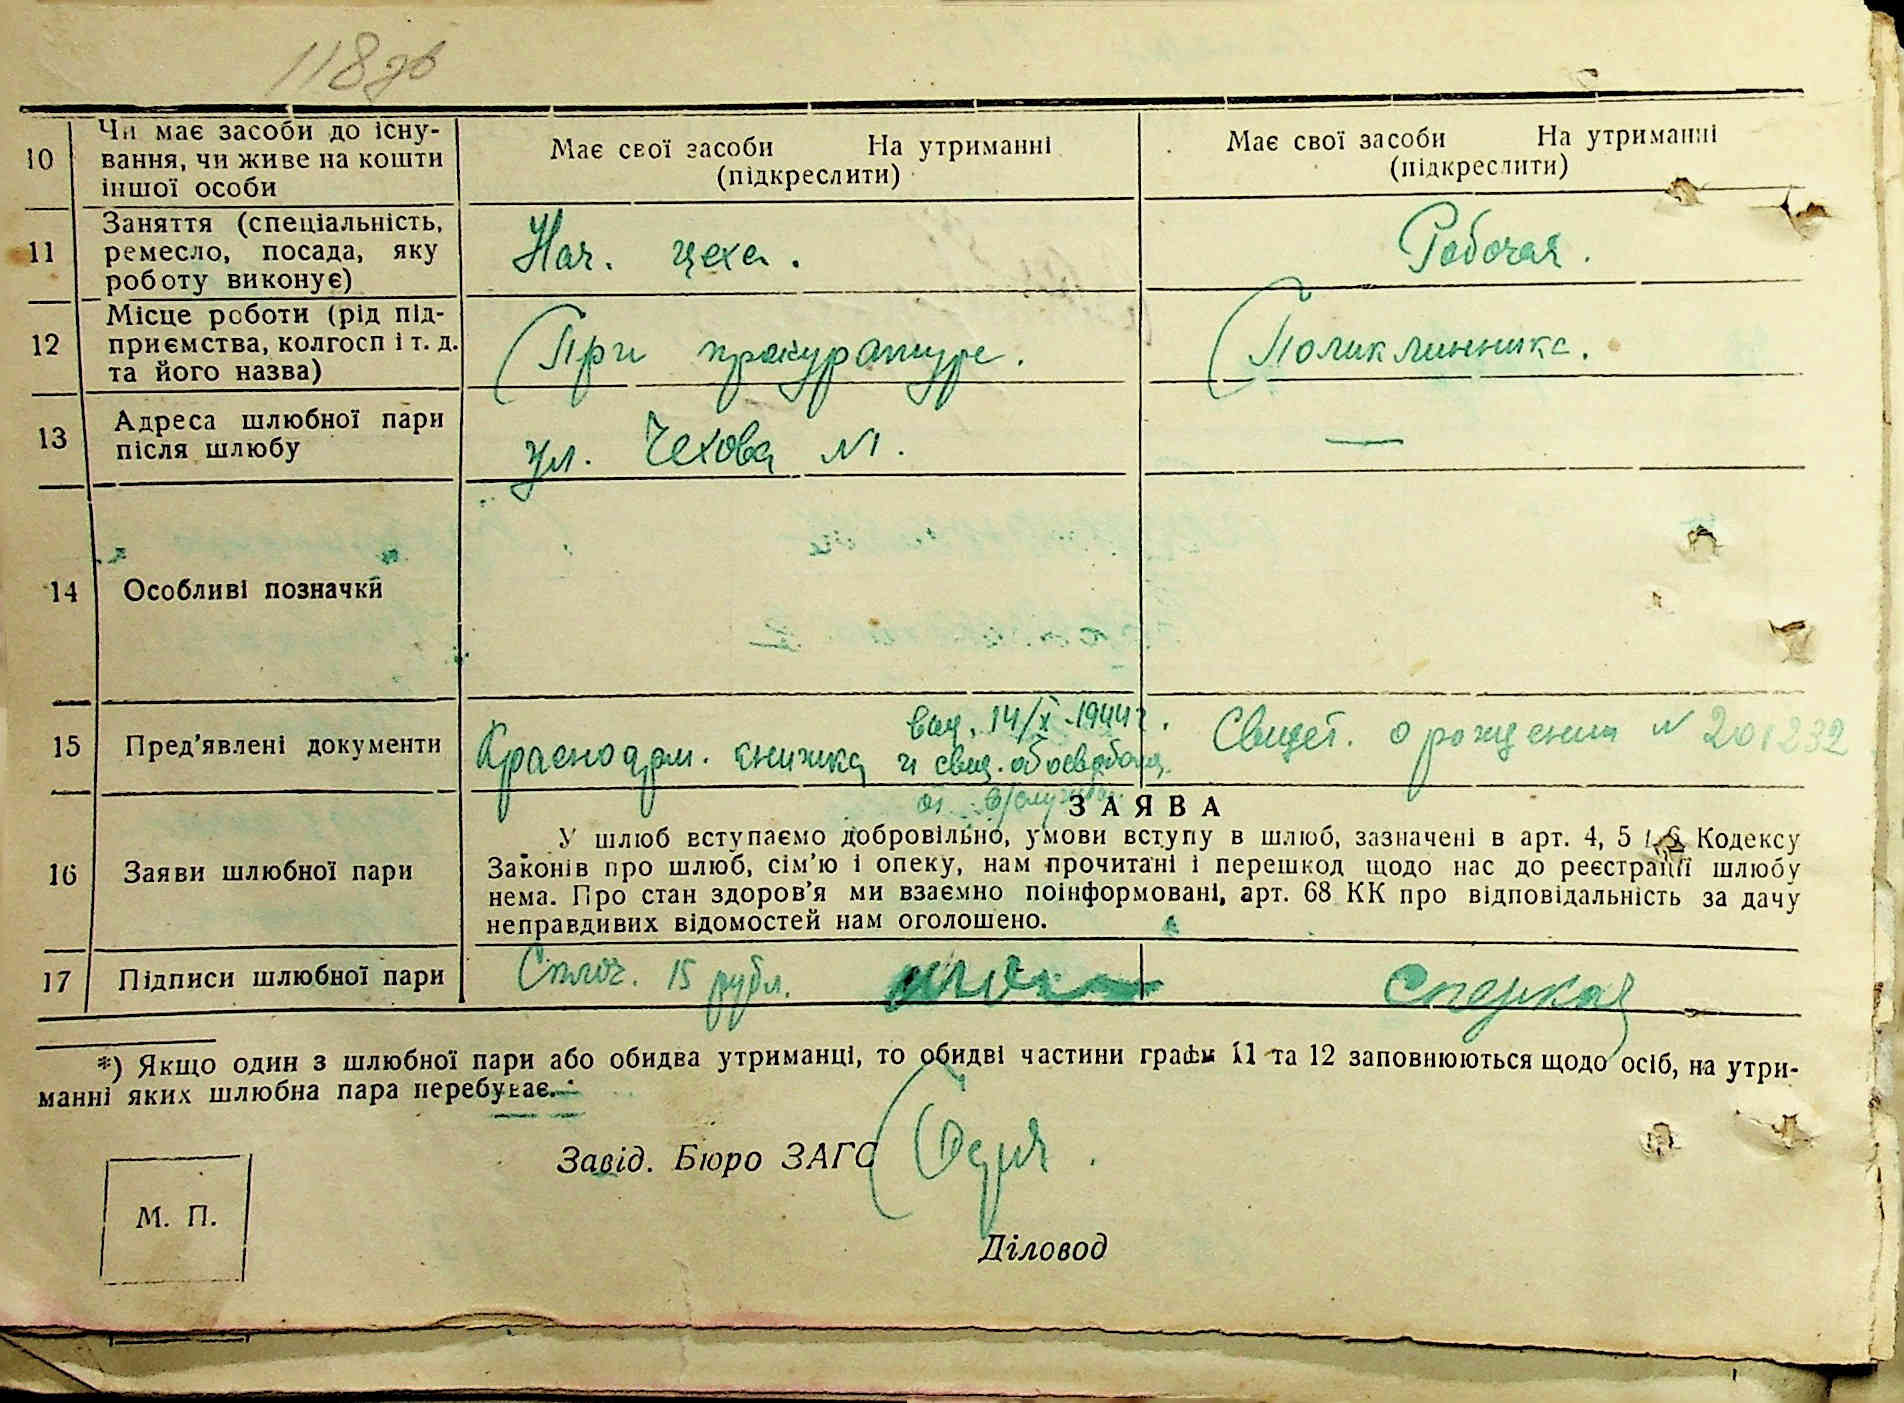 118 зв
10 Чи має засоби до існу-
вання, чи живе на кошти
іншої особи
Має свої засоби На утриманні
(підкреслити)
Має свої засоби На утриманні
(підкреслити)
11 Заняття (спеціальність,
ремесло, посада, яку
роботу виконує)
Нач. цеха.
Рабочая.
12 Місце роботи (рід під-
приємства, колгосп і т. д.
та його назва)
При прокуратуре.
Поликлинника.
13 Адреса шлюбної пари
після шлюбу
ул. Чехова №1.
—
14 Особливі позначки
15 Пред'явлені документи
выд. 14/X-1944 г.
Красноарм. книжка и свид. об освобожд.
от в/службы
Свидет. о рождении № 201232
16 Заяви шлюбної пари
ЗАЯВА
У шлюб вступаємо добровільно, умови вступу в шлюб, зазначені в арт. 4, 5 і 6 Кодексу
Законів про шлюб, сім'ю і опеку, нам прочитані і перешкод щодо нас до реєстрації шлюбу
нема. Про стан здоров'я ми взаємно поінформовані, арт. 68 КК про відповідальність за дачу
неправдивих відомостей нам оголошено.
17 Підписи шлюбної пари
Сплоч. 15 рубл.
*) Якщо один з шлюбної пари або обидва утриманці, то обидві частини графи 11 та 12 заповнюються щодо осіб, на утри-
манні яких шлюбна пара перебуває.
Завід. Бюро ЗАГС
М. П.
Діловод